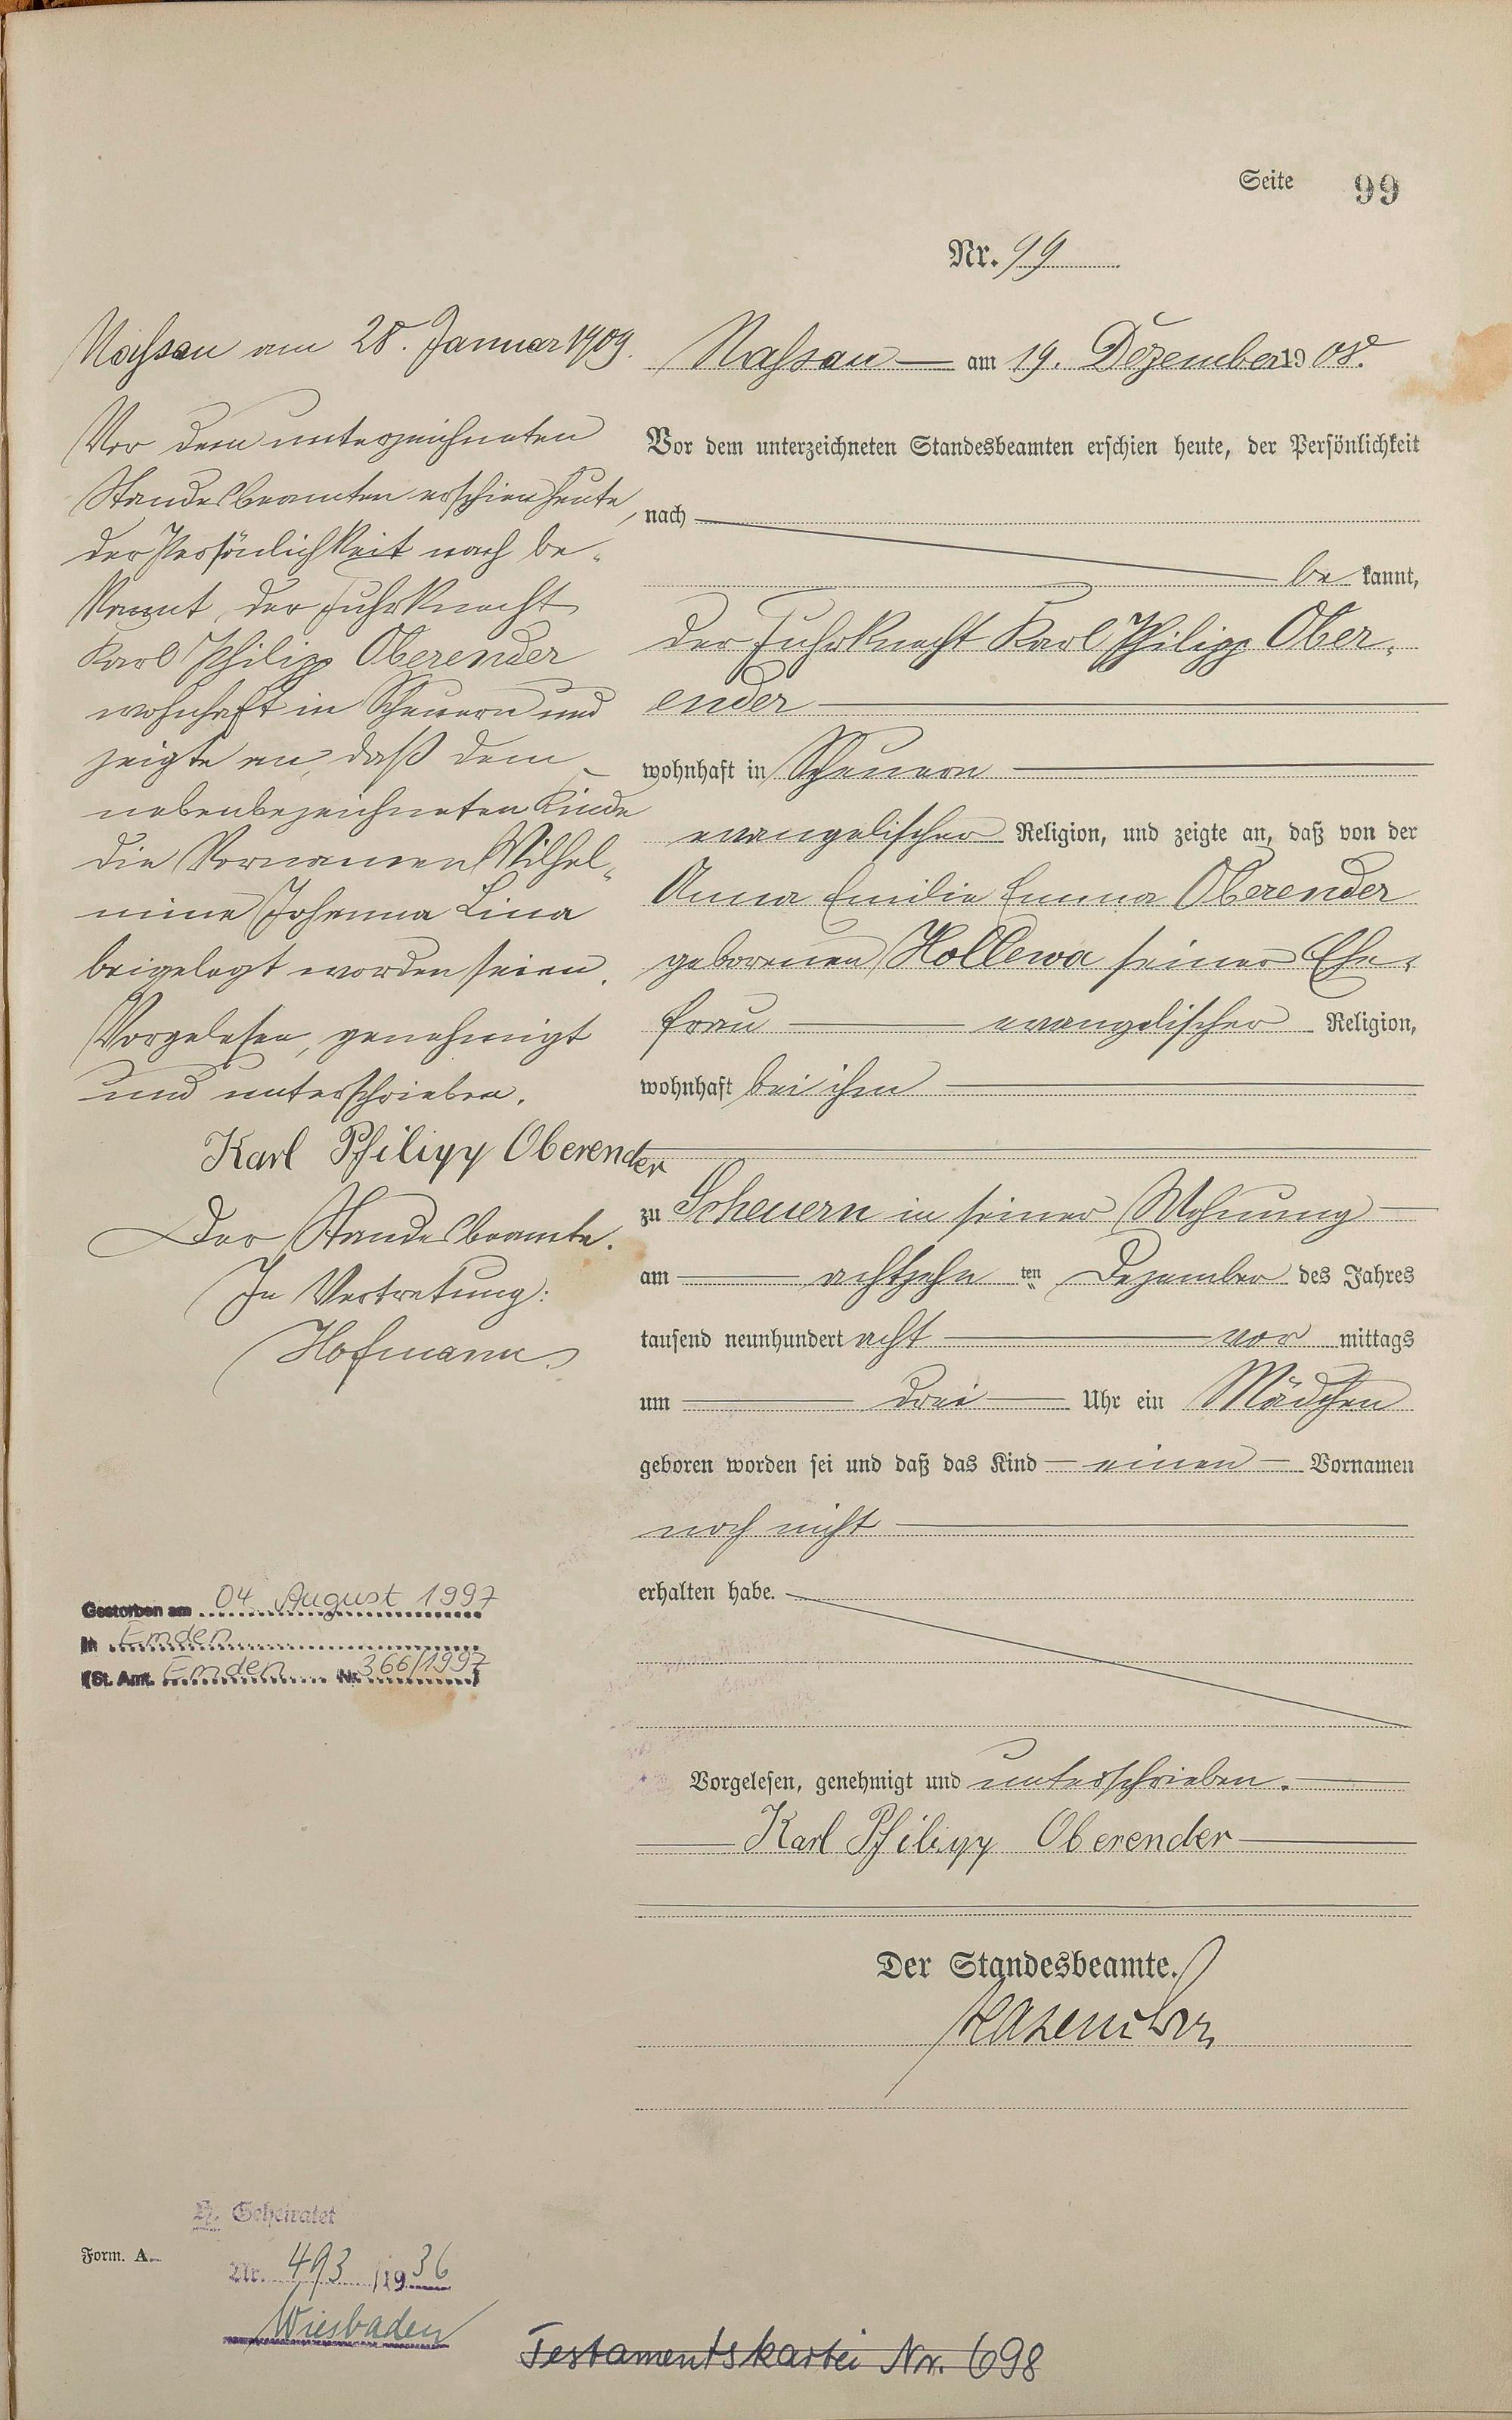 Seite 99
Nr. 99
Nassau am 19. Dezember 1908.
Vor dem unterzeichneten Standesbeamten erschien heute, der Persönlichkeit
nach
be kannt,
der Fuhrknecht Karl Philipp Ober-
ender
wohnhaft in Scheuern
evangelischer Religion, und zeigte an, daß von der
Anna Emilie Emma Oberender
geborenen Hollewa seiner Ehe-
frau evangelischer Religion,
wohnhaft bei ihm
zu Scheuern in seiner Wohnung
am achtzehn ten Dezember des Jahres
tausend neunhundert acht vor mittags
um drei Uhr ein Mädchen
geboren worden sei und daß das Kind einen Vornamen
noch nicht
erhalten habe.
Vorgelesen, genehmigt und unterschrieben.
Karl Philipp Oberender
Der Standesbeamte.
Nassau am 28. Januar 1909.
Vor dem unterzeichneten
Standesbeamten erschien heute,
der Persönlichkeit nach be-
kannt, der Fuhrknecht
Karl Philipp Oberender
wohnhaft in Scheuern und
zeigte an, daß dem
nebenbezeichneten Kinde
die Vornamen Wilhel-
mine Johanna Lina
beigelegt worden seien.
Vorgelesen, genehmigt
und unterschrieben.
Karl Philipp Oberender
Der Standesbeamte.
In Vertretung:
Hofmann
Gestorben am 04 August 1997
in Emden
(St. Amt. Emden Nr. 366/1997)
Geheiratet
Form. A.
Nr. 493 /1936
Wiesbaden
Testamentskartei Nr. 698